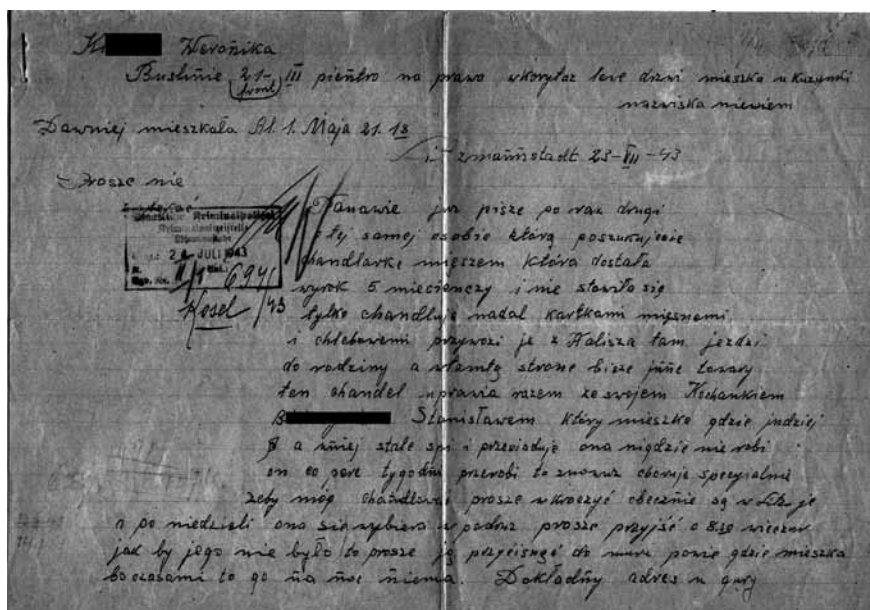 K Weroñika
Buslinie 21- III pieñtro na prawo wkorytaż lewe dzwi mieszka u Kuzynki
front
nazwiska niewiem
Dawniej mieszkała Al. 1. Maja 21. 18
Litzmannstadt 23-VII-43
Prosze nie
Kriminalpolizei
Kriminalpolizeistelle
Litzmannstadt
JULI 1943
694/43
Panowie już pisze po raz drugi
o tej samej osobie którą poszukujecie
chandlarkę mieszem która dostała
wyrok 5 miecienczy i nie stawiło się
tylko chandluje nadal kartkami mięsnemi
i chlebowemi przywozi je z Kalisza tam jezdzi
do rodziny a wtamtą strone bieze jnñe towary
ten chandel uprawia razem ze swojem Kochankiem
B Stanisławem który mieszka gdzie jndziej
a zniej stale spi i przesiaduje ona nigdzie nie robi
on co pare tygodni przerobi to znowuż choruje specyialnie
żeby móg chañdlować prosze wkroczyć obecznie są w Litz. je
a po niedzieli ona się wybiera w podruż prosze przyjść o 8.30 wieczur
jak by jego nie było to prosze ją przycisnąć do muru powie gdzie mieszka
bo czasami to go ña ñoc ñiema. Dokładñy adres u gury